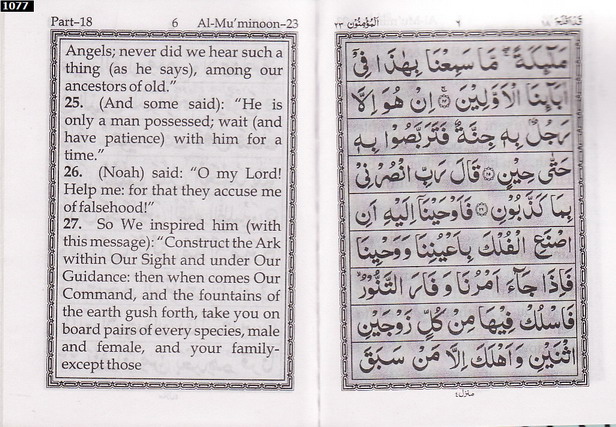 1077
Part-18 6 Al-Mu'minoon-23
Angels; never did we hear such a
thing (as he says), among our
ancestors of old."
25. (And some said): "He is
only a man possessed; wait (and
have patience) with him for a
time."
26. (Noah) said: "O my Lord!
Help me: for that they accuse me
of falsehood!"
27. So We inspired him (with
this message): "Construct the Ark
within Our Sight and under Our
Guidance: then when comes Our
Command, and the fountains of
the earth gush forth, take you on
board pairs of every species, male
and female, and your family-
except those
الْمُؤْمِنُوْن ٢٣ ٦
مَلٰٓئِكَةً ۖ مَّا سَمِعْنَا بِهٰذَا فِيْٓ
اٰبَآئِنَا الْاَوَّلِيْنَ ۝ اِنْ هُوَ اِلَّا
رَجُلٌۢ بِهٖ جِنَّةٌ فَتَرَبَّصُوْا بِهٖ
حَتّٰى حِيْنٍ ۝ قَالَ رَبِّ انْصُرْنِيْ
بِمَا كَذَّبُوْنِ ۝ فَاَوْحَيْنَآ اِلَيْهِ اَنِ
اصْنَعِ الْفُلْكَ بِاَعْيُنِنَا وَوَحْيِنَا
فَاِذَا جَآءَ اَمْرُنَا وَفَارَ التَّنُّوْرُ ۙ
فَاسْلُكْ فِيْهَا مِنْ كُلٍّ زَوْجَيْنِ
اثْنَيْنِ وَاَهْلَكَ اِلَّا مَنْ سَبَقَ
منزل ٤